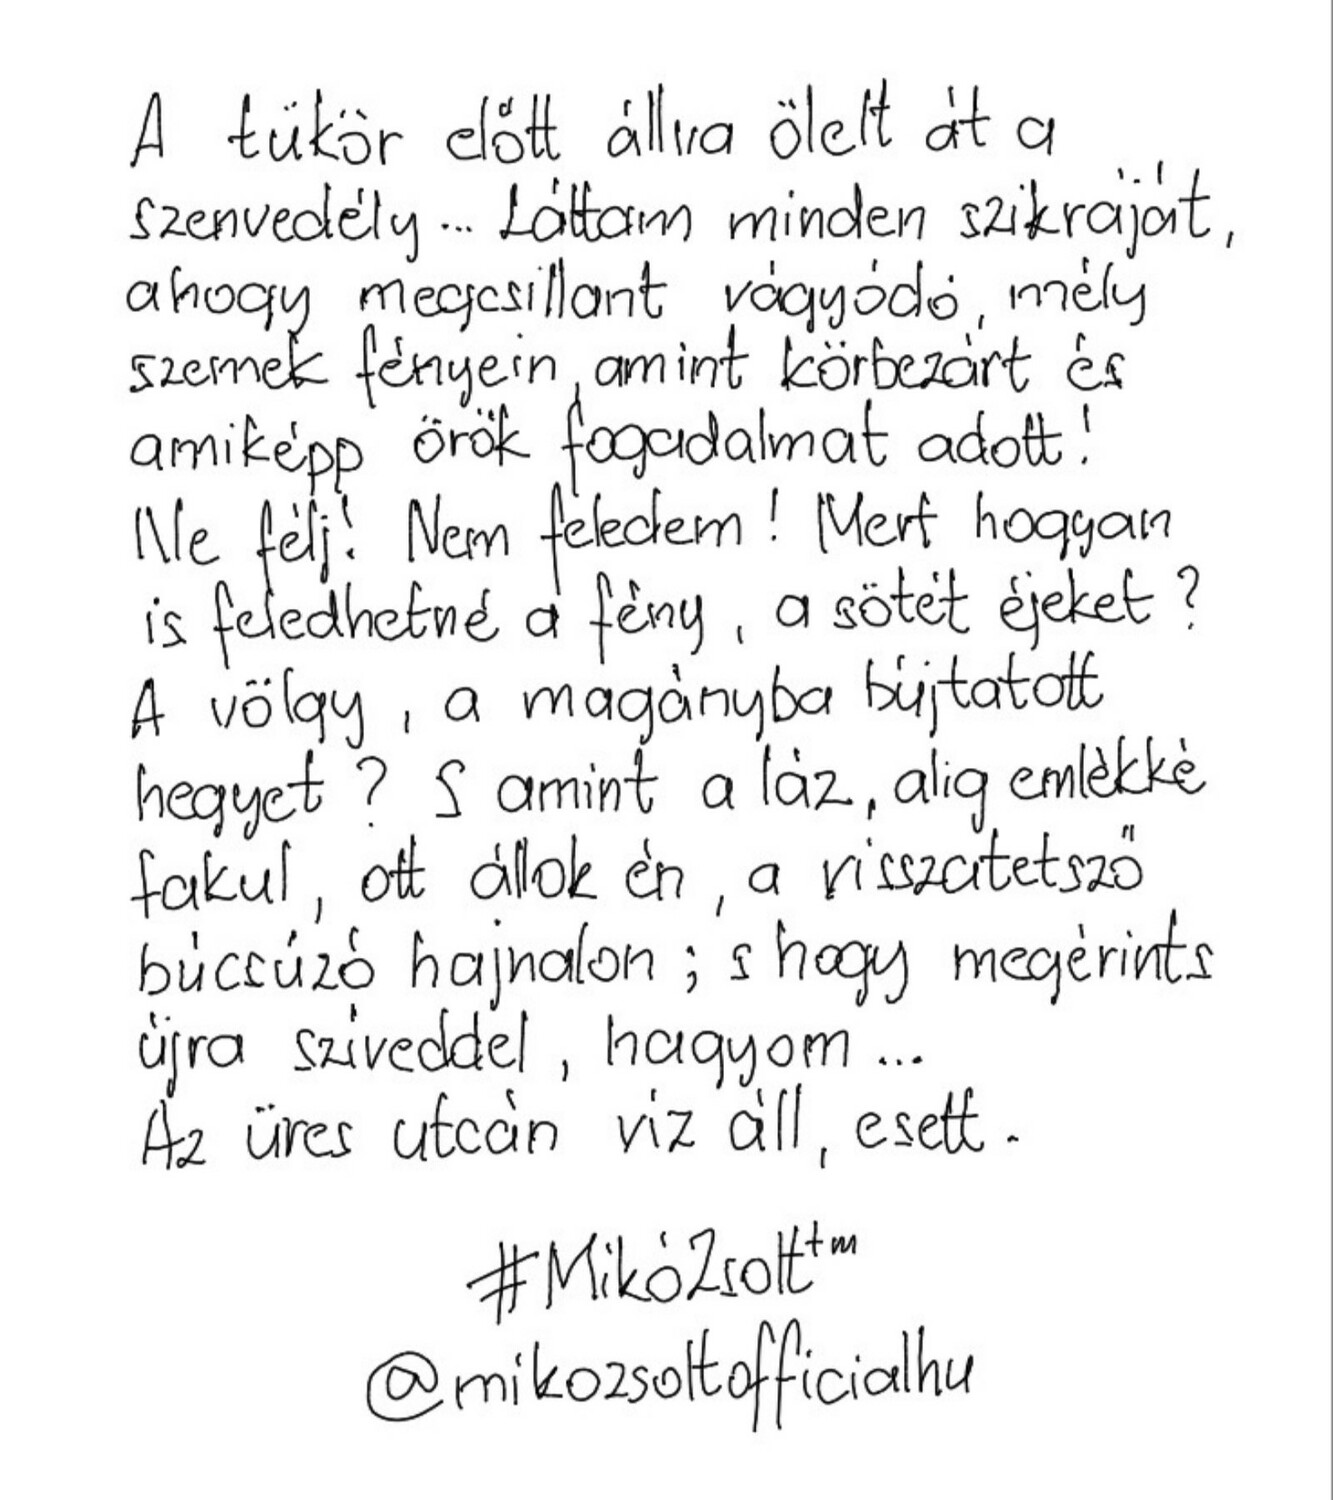 A tükör előtt állva ölelt át a
szenvedély... Láttam minden szikráját,
ahogy megcsillant vágyódó, mély
szemek fényein, amint körbezárt és
amiképp örök fogadalmat adott!
Ne félj! Nem feledem! Mert hogyan
is feledhetné a fény, a sötét éjeket?
A völgy, a magányba bújtatott
hegyet? S amint a láz, alig emlékké
fakul, ott állok én, a visszatetsző
búcsúzó hajnalon; s hogy megérints
újra sziveddel, hagyom...
Az üres utcán viz áll, esett.
#MikóZsolt™
@mikozsoltofficialhu